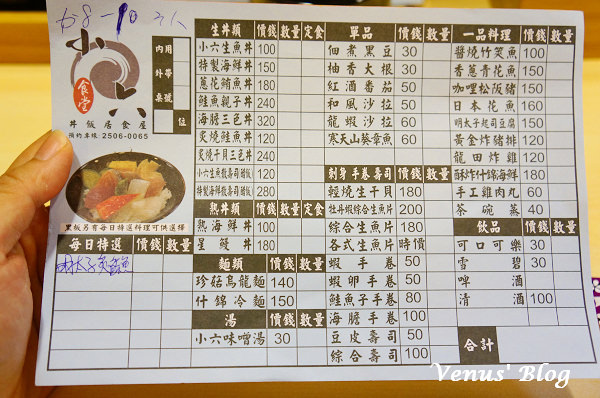 小六
食堂
丼飯居食屋
預約專線:2506-0065
內用
外帶
桌號
位
黑板另有每日特選料理可供選擇
每日特選 價錢 數量
生丼類 價錢 數量 定食
小六生魚丼 100
特製海鮮丼 150
蔥花鮪魚丼 180
鮭魚親子丼 240
海膽三色丼 320
炙燒鮭魚丼 120
炙燒干貝三色丼 240
小六生魚散壽司醋飯 120
特製海鮮散壽司醋飯 280
熟丼類 價錢 數量 定食
熟海鮮丼 100
星鰻丼 180
麵類 價錢 數量
珍菇烏龍麵 140
什錦冷麵 150
湯 價錢 數量
小六味噌湯 30
單品 價錢 數量
佃煮黑豆 30
柚香大根 30
紅酒番茄 50
和風沙拉 50
龍蝦沙拉 60
寒天山葵章魚 60
刺身手卷壽司 價錢 數量
輕燒生干貝 180
牡丹蝦綜合生魚片 200
綜合生魚片 180
各式生魚片 時價
蝦手卷 50
蝦卵手卷 50
鮭魚子手卷 80
海膽手卷 100
豆皮壽司 50
綜合壽司 100
一品料理 價錢 數量
醬燒竹筴魚 100
香蔥青花魚 150
咖哩松阪豬 150
日本花魚 160
明太子起司豆腐 150
黃金炸豬排 120
龍田炸雞 120
酥炸什錦海鮮 180
手工雞肉丸 60
茶碗蒸 40
飲品 價錢 數量
可口可樂 30
雪碧 30
啤酒
清酒 100
合計
Venus' Blog